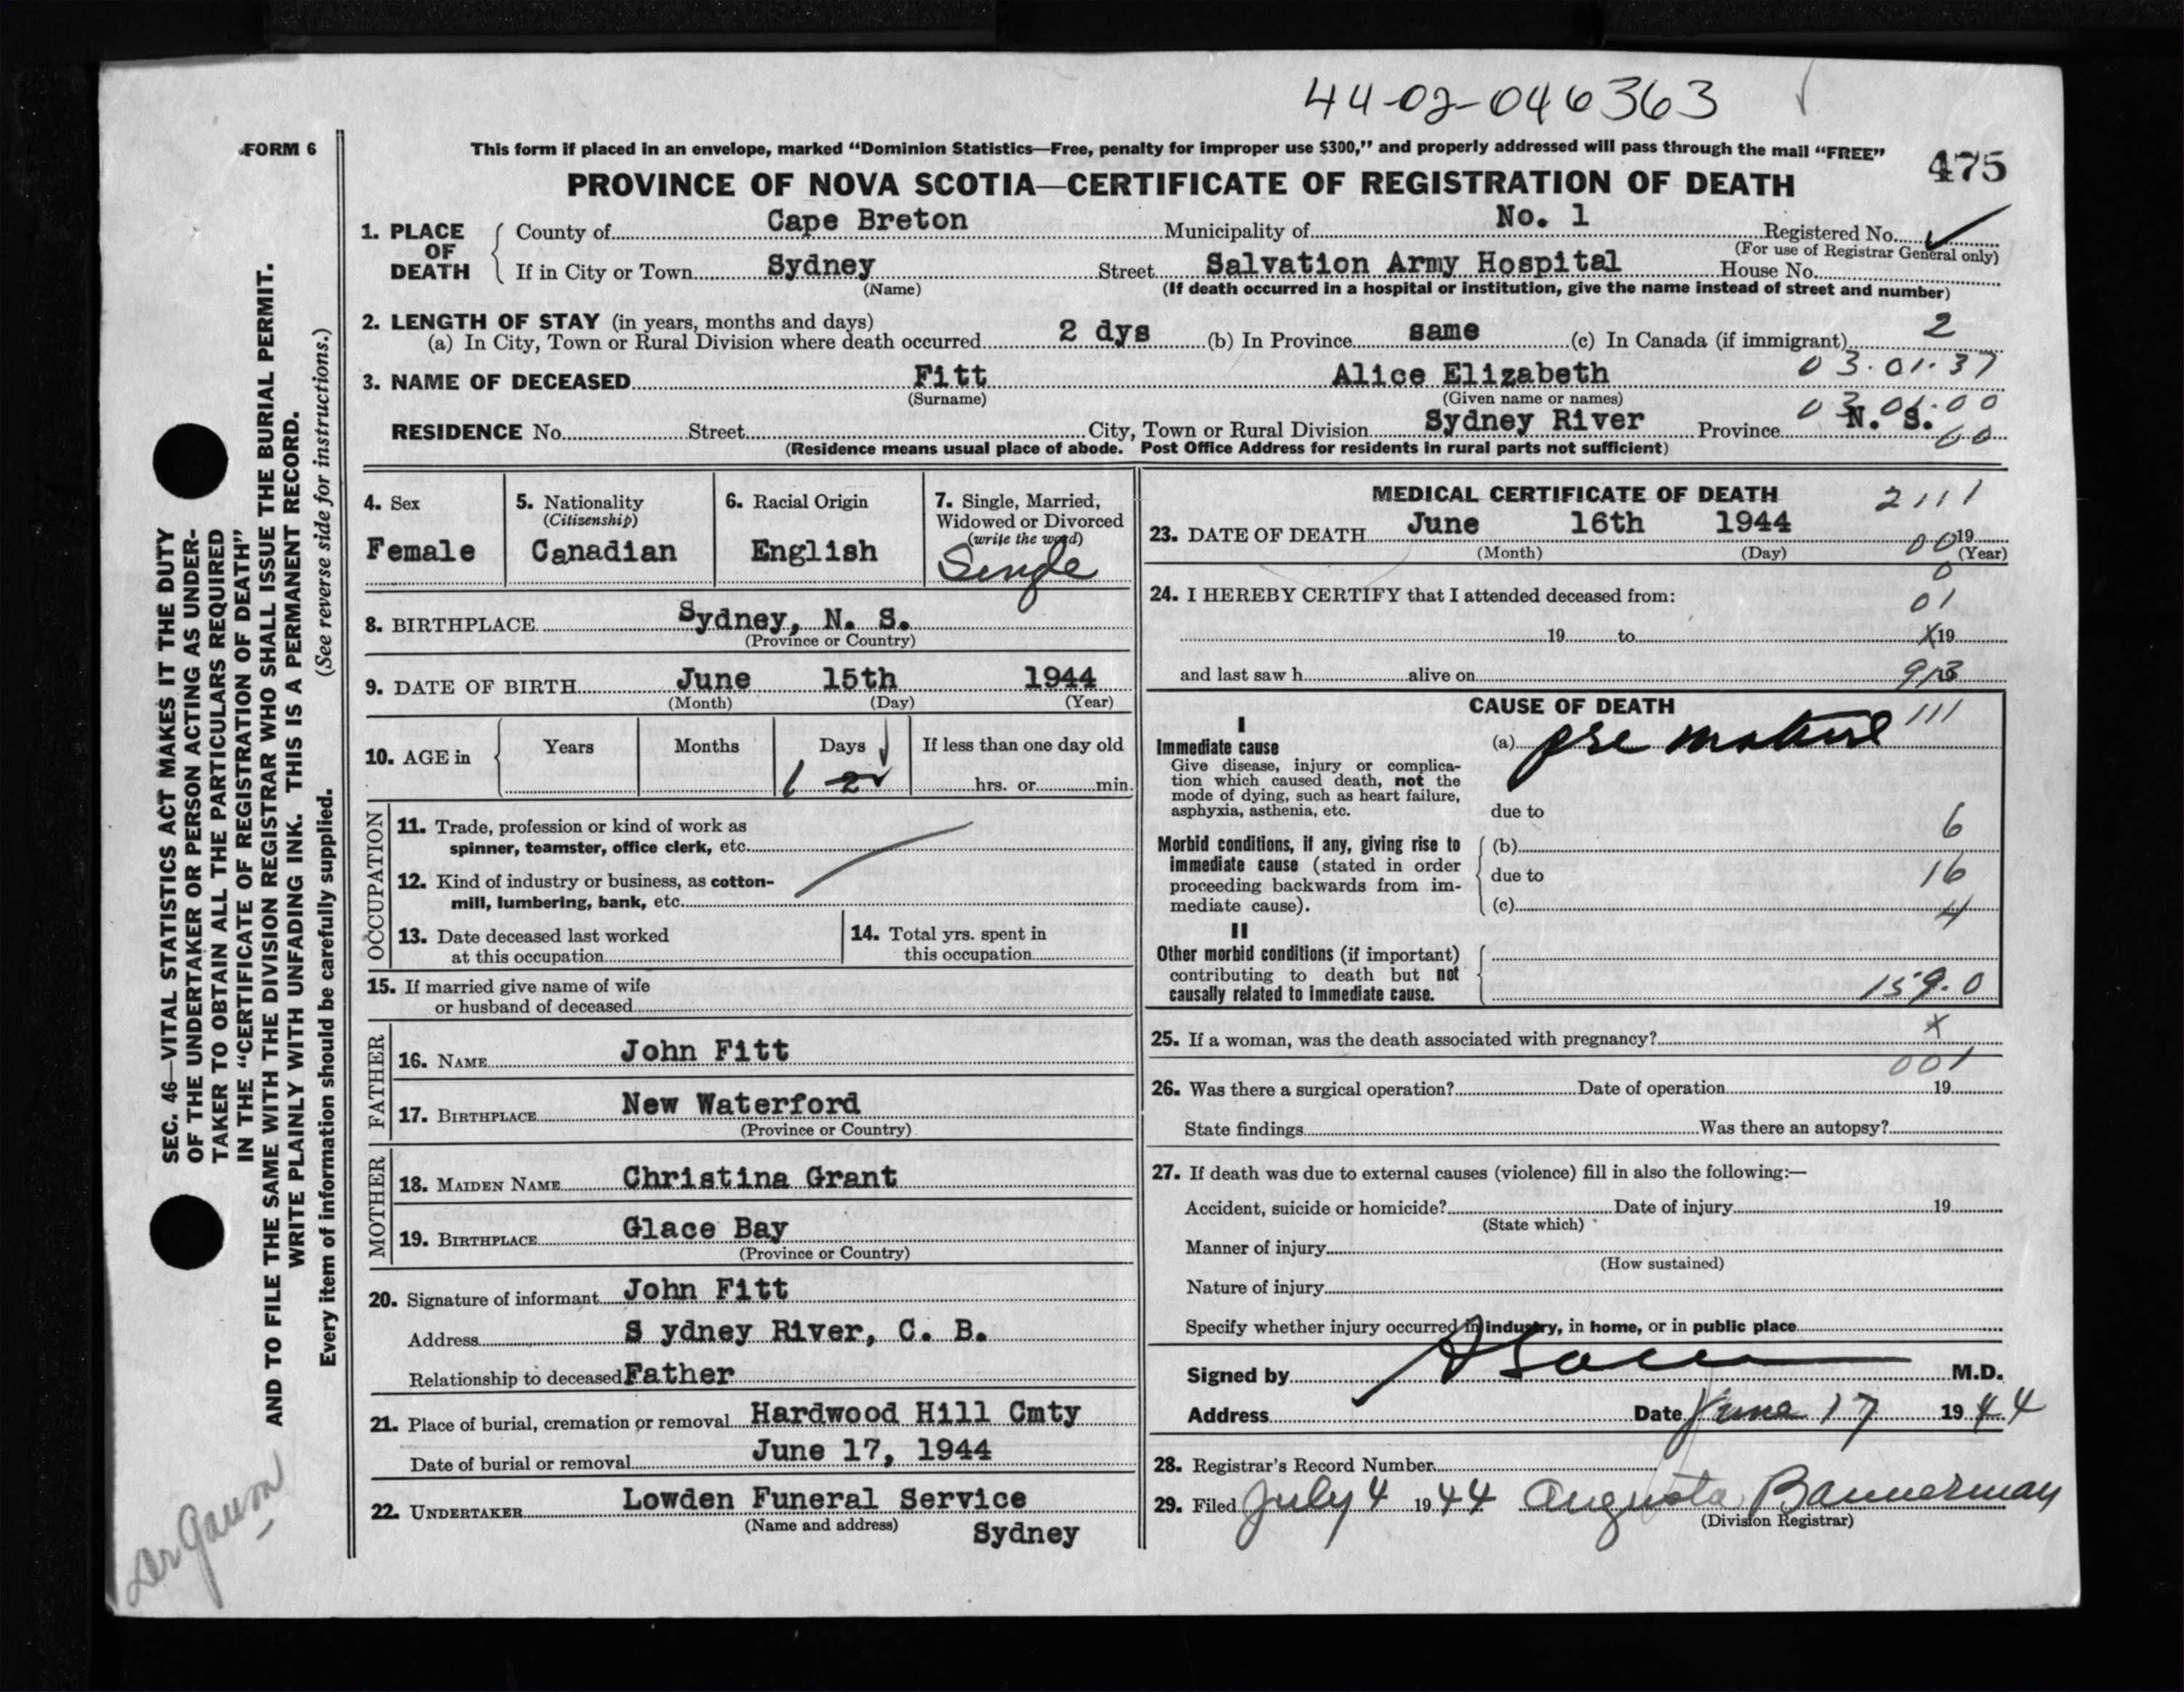 44-02-046363
FORM 6
This form if placed in an envelope, marked “Dominion Statistics—Free, penalty for improper use $300,” and properly addressed will pass through the mail “FREE”
475
PROVINCE OF NOVA SCOTIA—CERTIFICATE OF REGISTRATION OF DEATH
1. PLACE OF DEATH
County of Cape Breton Municipality of No. 1 Registered No. ✓
(For use of Registrar General only)
If in City or Town Sydney Street Salvation Army Hospital House No.
(Name) (If death occurred in a hospital or institution, give the name instead of street and number)
2. LENGTH OF STAY (in years, months and days)
(a) In City, Town or Rural Division where death occurred 2 dys (b) In Province same (c) In Canada (if immigrant) 2
03.01.37
3. NAME OF DECEASED Fitt Alice Elizabeth
(Surname) (Given name or names)
03.01.00
RESIDENCE No. Street City, Town or Rural Division Sydney River Province N. S.
00
(Residence means usual place of abode. Post Office Address for residents in rural parts not sufficient)
4. Sex
Female
5. Nationality
(Citizenship)
Canadian
6. Racial Origin
English
7. Single, Married,
Widowed or Divorced
(write the word)
Single
8. BIRTHPLACE Sydney, N. S.
(Province or Country)
9. DATE OF BIRTH June 15th 1944
(Month) (Day) (Year)
10. AGE in Years Months Days If less than one day old
1 2 hrs. or min.
OCCUPATION
11. Trade, profession or kind of work as
spinner, teamster, office clerk, etc.
12. Kind of industry or business, as cotton-
mill, lumbering, bank, etc.
13. Date deceased last worked
at this occupation
14. Total yrs. spent in
this occupation
15. If married give name of wife
or husband of deceased
FATHER
16. NAME John Fitt
17. BIRTHPLACE New Waterford
(Province or Country)
MOTHER
18. MAIDEN NAME Christina Grant
19. BIRTHPLACE Glace Bay
(Province or Country)
20. Signature of informant John Fitt
Address S ydney River, C. B.
Relationship to deceased Father
21. Place of burial, cremation or removal Hardwood Hill Cmty
Date of burial or removal June 17, 1944
22. UNDERTAKER Lowden Funeral Service
(Name and address) Sydney
MEDICAL CERTIFICATE OF DEATH
2111
23. DATE OF DEATH June 16th 1944
00 19
(Month) (Day) (Year)
0
24. I HEREBY CERTIFY that I attended deceased from:
01
19 to X 19
and last saw h alive on 913 19
CAUSE OF DEATH
111
I
Immediate cause
Give disease, injury or complica-
tion which caused death, not the
mode of dying, such as heart failure,
asphyxia, asthenia, etc.
(a) pre mature
due to
Morbid conditions, if any, giving rise to
immediate cause (stated in order
proceeding backwards from im-
mediate cause).
(b) 6
due to 16
(c) 4
II
Other morbid conditions (if important)
contributing to death but not
causally related to immediate cause.
159.0
25. If a woman, was the death associated with pregnancy? X
001
26. Was there a surgical operation? Date of operation 19
State findings Was there an autopsy?
27. If death was due to external causes (violence) fill in also the following:—
Accident, suicide or homicide? Date of injury 19
(State which)
Manner of injury
(How sustained)
Nature of injury
Specify whether injury occurred in industry, in home, or in public place
Signed by M.D.
Address Date June 17 1944
28. Registrar's Record Number
29. Filed July 4 1944 Augusta Bannerman
(Division Registrar)
SEC. 46—VITAL STATISTICS ACT MAKES IT THE DUTY
OF THE UNDERTAKER OR PERSON ACTING AS UNDER-
TAKER TO OBTAIN ALL THE PARTICULARS REQUIRED
IN THE “CERTIFICATE OF REGISTRATION OF DEATH”
AND TO FILE THE SAME WITH THE DIVISION REGISTRAR WHO SHALL ISSUE THE BURIAL PERMIT.
WRITE PLAINLY WITH UNFADING INK. THIS IS A PERMANENT RECORD.
(See reverse side for instructions.)
Every item of information should be carefully supplied.